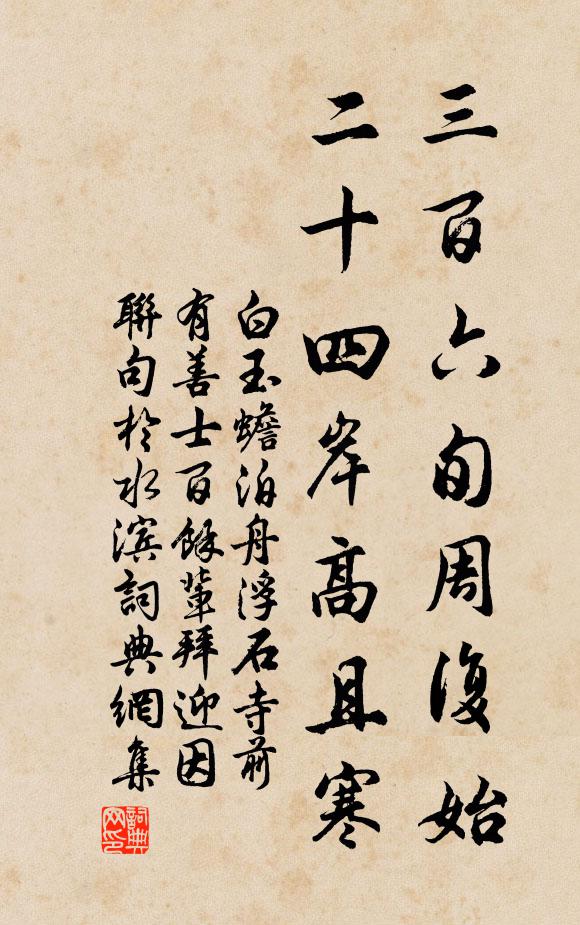 三百六旬周復始
二十四岸高且寒
白玉蟾泊舟浮石寺前
有善士百餘輩拜迎因
聯句於水滨詞典網集
詞典网印